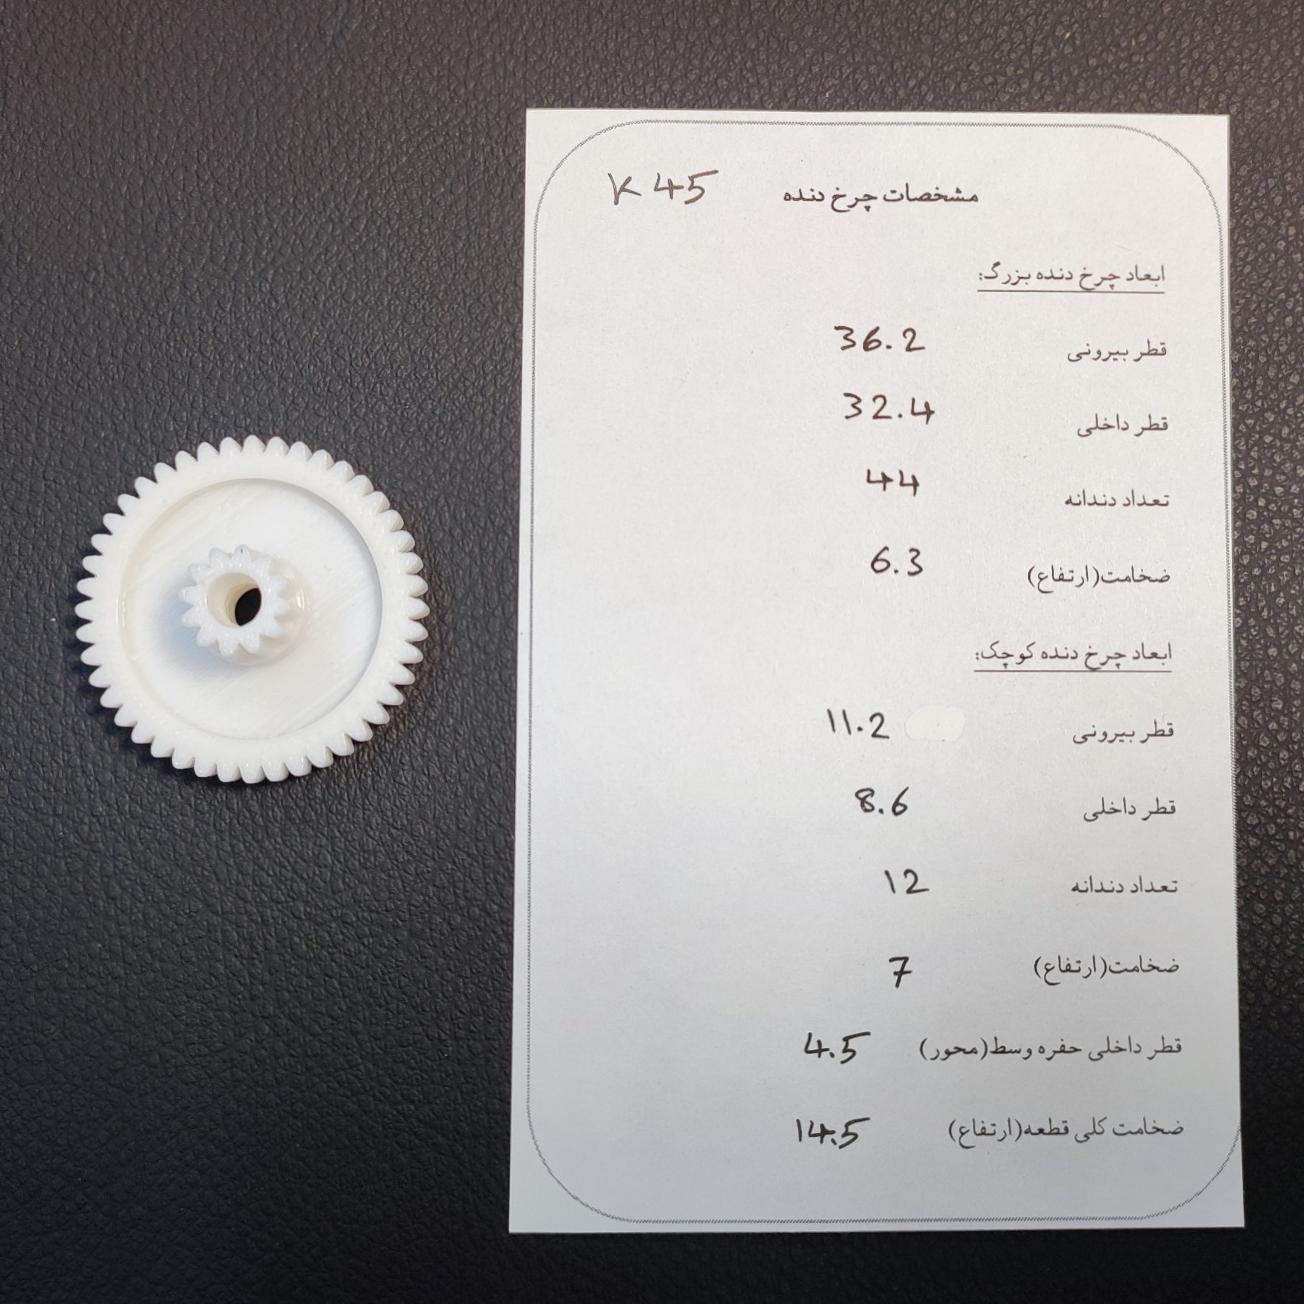 مشخصات چرخ دنده K 45
ابعاد چرخ دنده بزرگ:
قطر بیرونی 36.2
قطر داخلی 32.4
تعداد دندانه 44
ضخامت(ارتفاع) 6.3
ابعاد چرخ دنده کوچک:
قطر بیرونی 11.2
قطر داخلی 8.6
تعداد دندانه 12
ضخامت(ارتفاع) 7
قطر داخلی حفره وسط(محور) 4.5
ضخامت کلی قطعه(ارتفاع) 14.5